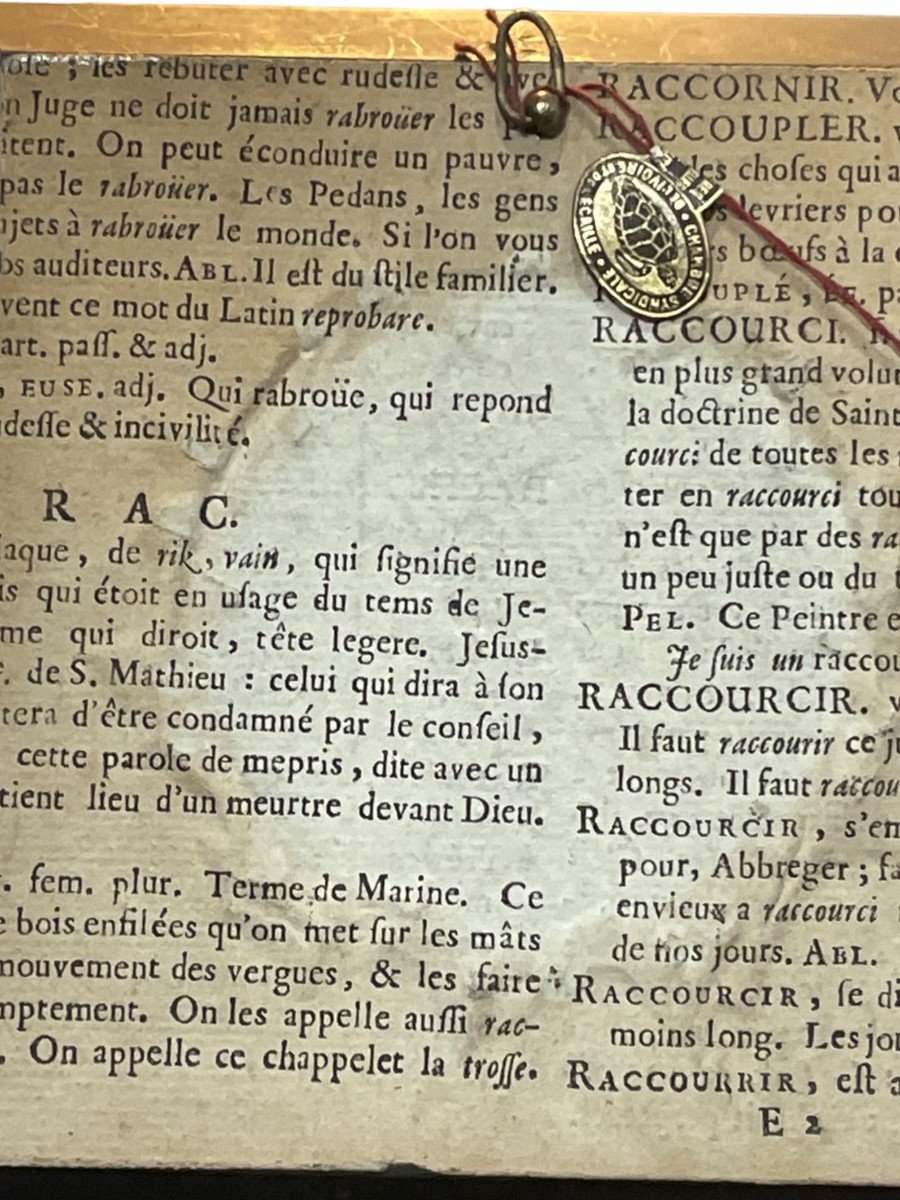 les rebuter avec rudesse & avec
Juge ne doit jamais rabroüer les
On peut éconduire un pauvre,
pas le rabroüer. Les Pedans, les gens
sujets à rabroüer le monde. Si l'on vous
auditeurs. ABL. Il est du stile familier.
vent ce mot du Latin reprobare.
art. pass. & adj.
, EUSE. adj. Qui rabroüe, qui repond
& incivilité.
R A C.
de rik, vain, qui signifie une
qui étoit en usage du tems de Je-
me qui diroit, tête legere. Jesus-
de S. Mathieu : celui qui dira à son
d'être condamné par le conseil,
cette parole de mepris, dite avec un
tient lieu d'un meurtre devant Dieu.
fem. plur. Terme de Marine. Ce
bois enfilées qu'on met sur les mâts
mouvement des vergues, & les faire
On les appelle aussi rac-
On appelle ce chappelet la trosse.
RACCORNIR.
RACCOUPLER.
des choses qui
levriers
bœufs à la
RACCOURCI.
en plus grand
la doctrine de Saint
courci de toutes les
ter en raccourci
n'est que par des
un peu juste ou du
PEL. Ce Peintre
Je suis un
RACCOURCIR.
Il faut raccourir ce
longs. Il faut
RACCOURCIR, s'em
pour, Abbreger ;
envieux a raccourci
de nos jours. ABL.
RACCOURCIR, se
moins long. Les
RACCOURRIR, est
E 2
CHAMBRE SYNDICALE